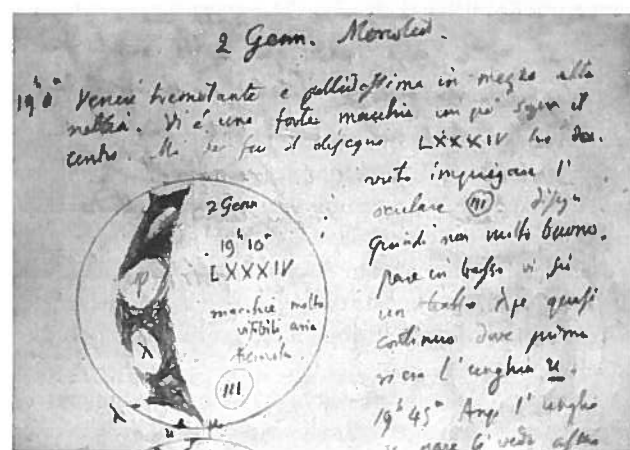 2 Genn. Mercoledì.
19h 0m Venere tremolante e pallidissima in mezzo alla
nebbia. Vi è una forte macchia un po' sopra il
centro. Ma per fare il disegno LXXXIV ho do-
vuto impiegare l'
oculare III. disegn
quindi non molto buono.
pare in basso vi sia
un quasi
continuo dove prima
vi era l'unghia u.
19h 45m Anzi l'unghia
si vede
2 Genn
19h 10m
LXXXIV
macchie molto
visibili aria
tremola
III
φ
λ
λ
u
μ